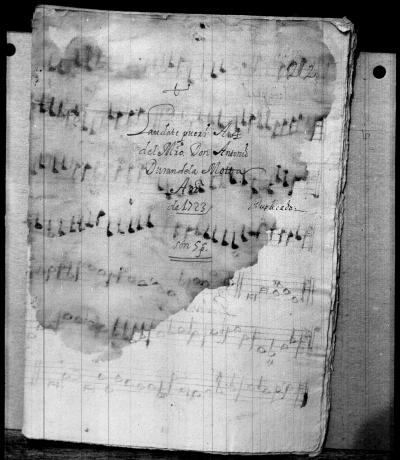 212
Laudate pueri A 4
del Mro. Don Antonio
Duran de la Motta
Año
de 1723 Duplicado
son 5 p.